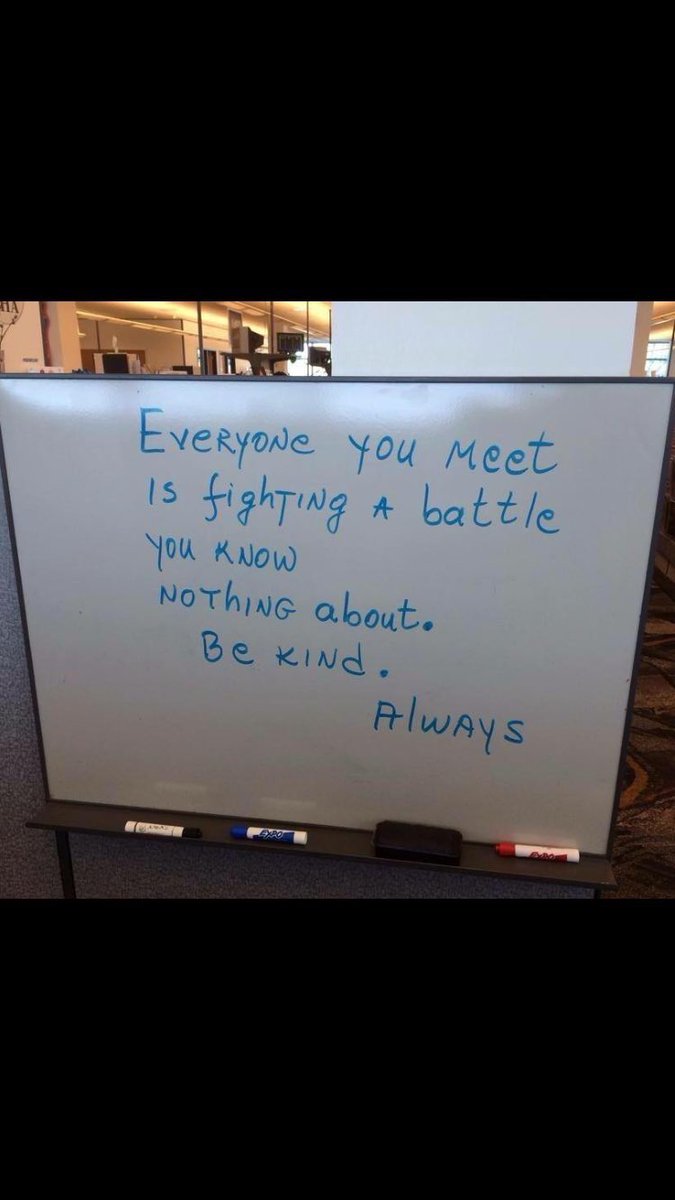 HA
Everyone you meet
is fighting a battle
you know
nothing about.
Be kind.
Always
EXPO
EXPO